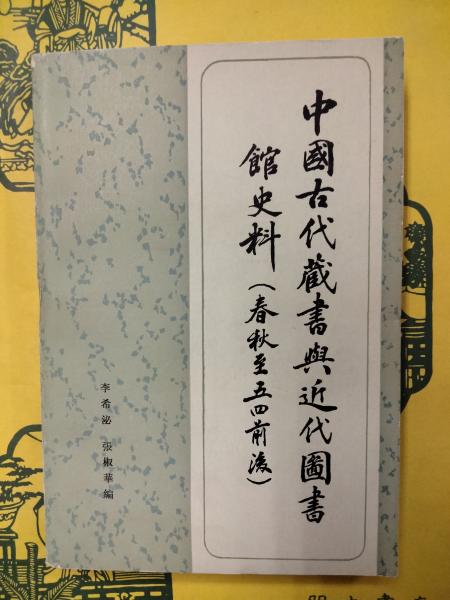 中國古代藏書與近代圖書
館史料(春秋至五四前後)
李希泌 張椒華編